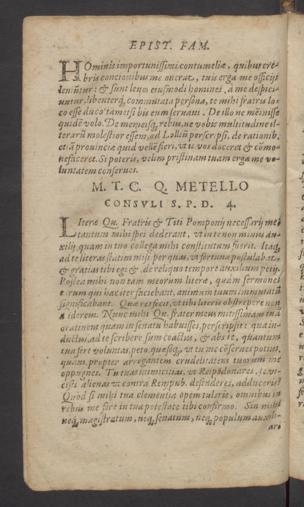 EPIST. FAM.
HOminis importunissimi contumeliæ, quibus cre-
bris concionibus me onerat, tuis erga me officijs
leniũtur: & sunt leues eiusmodi homines, à me despici-
untur, libenterq́; commutata persona, te mihi fratris lo-
co esse duco tametsi bis eum seruaui. De illo ne meminisse
quidẽ volo. De meis
ne vobis multitudine li-
terarũ molestior essem, ad Lollũ perscripsi, de rationib.
et à prouinciæ quid vellẽ fieri, vt is vos doceret & cõmo-
nefaceret. Si poteris, velim pristinam tuam erga me vo-
luntatem conserues.
M. T. C. Q. METELLO
CONSVLI S. P. D. 4.
LIteræ Qu. Fratris & Titi Pomponij necessarij mei
tantum mihi spei dederant, vt in te non minus au-
xilij, quàm in tuo collega mihi constitutum fuerit. Itaq́;
ad te literas statim misi per quas, vt fortuna postulabat,
& gratias tibi egi & de reliquo tempore auxilium petij.
Postea mihi non tam meorum literæ, quàm sermones
eorum qui hac iter faciebant, animum tuum immutatũ
significabant. Quæ res fecit, vt tibi literis obstrepere non
auderem. Nunc mihi Qu. frater meus mitissimam tuã
orationem quam in senatu habuisses, perscripsit: qua in-
ductus, ad te scribere sum coactus, & abs te, quantum
tua fert voluntas, peto quæsoq́;, vt tuos mecũ serues potius,
quàm propter arrogantem crudelitatem tuorum me
oppugnes. Tu tuas inimicitias, vt Reip. donares, te vi-
cisti: alienas vt contra Rempub.
Quod si mihi tua clementia opem tuleris, omnibus in
rebus me fore in tua potestate tibi confirmo. Sin mihi
neq́; magistratum, neq́; senatum, neq́; populum auxili-
ari